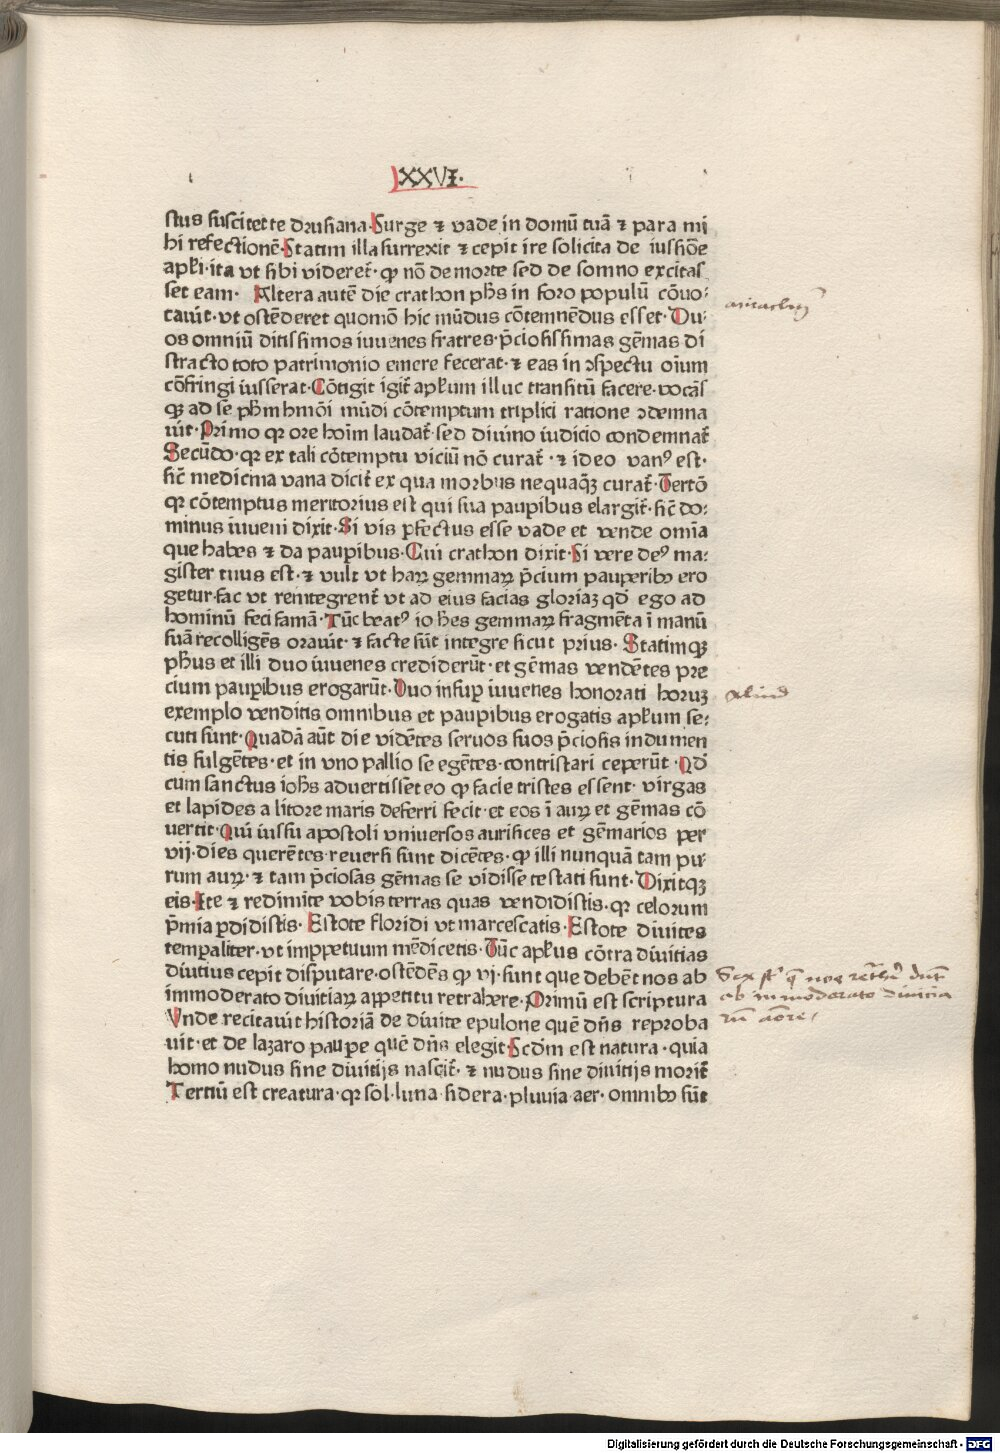 LXXVI.
stus suscitet te drusiana·Surge ⁊ vade in domū tuā ⁊ para mi
hi refectionē·Statim illa surrexit ⁊ cepit ire solicita de iussiōe
apl̄i·ita vt sibi videret̄· ꝙ nō de morte sed de somno excitas
set eam· Altera autē die crathon ph̄s in foro populū cōuo⸗
cauit·vt ostēderet quomō hic mūdus cōtemnēdus esset·Du⸗
os omniū ditissimos iuuenes fratres·p̄ciosissimas gēmas di
stracto toto patrimonio emere fecerat·⁊ eas in ꝯspectu oīum
cōfringi iusserat·Cōtigit igit̄ apl̄um illuc transitū facere·vocās
qꝫ ad se ph̄m hmōi mūdi cōtemptum triplici ratione ꝯdemna
uit·Primo qꝛ ore hoīm laudat̄·sed diuino iudicio condemnat̄
Secūdo·qꝛ ex tali cōtemptu viciū nō curat̄ ·⁊ ideo vanꝰ est·
sic̄ medicina vana dicit̄ ex qua morbus nequaqꝫ curat̄·Tertō
qꝛ cōtemptus meritorius est qui sua paupibus elargit̄·sic̄ do⸗
minus iuueni dixit·Si vis pfectus esse vade et vende omīa
que habes ⁊ da paupibus·Cui crathon dixit·Si vere deꝰ ma⸗
gister tuus est·⁊ vult vt haꝝ gemmaꝝ p̄cium pauperibꝰ ero
getur·fac vt reintegrent̄ vt ad eius facias gloriaꝫ qd̄ ego ad
hominū feci famā·Tūc beatꝰ iohēs gemmaꝝ fragmēta ī manū
suā recolligēs orauit·⁊ facte sūt integre sicut prius· Statimqꝫ
ph̄us et illi duo iuuenes crediderūt·et gēmas vendētes pre
cium paupibus erogarūt·Duo insup iuuenes honorati horuꝫ
exemplo venditis omnibus et paupibus erogatis apl̄um se⸗
cuti sunt·Quadā aūt die vidētes seruos suos p̄ciosis indumen
tis fulgētes·et in vno pallio se egētes·contristari ceperūt·Qd̄
cum sanctus ioh̄s aduertisset eo ꝙ facie tristes essent· virgas
et lapides a litore maris deferri fecit·et eos ī auꝝ et gēmas cō
uertit·Qui iussu apostoli vniuersos aurifices et gēmarios per
vij·dies querētes·reuersi sunt dicētes·ꝙ illi nunquā tam pu⸗
rum auꝝ·⁊ tam p̄ciosas gēmas se vidisse testati sunt·Dixitqꝫ
eis·Ite ⁊ redimite vobis terras quas vendidistis·qꝛ celorum
p̄mia pdidistis· Estote floridi vt marcescatis·Estote diuites
tempaliter·vt imppetuum mēdicetis·Tūc apl̄us cōtra diuitias
diutius cepit disputare·ostēdēs ꝙ vj·sunt que debēt nos ab
immoderato diuitiaꝝ appetitu retrahere·Primū est scriptura
Vnde recitauit historiā de diuite epulone quē dn̄s reproba
uit·et de lazaro paupe quē dn̄s elegit·Scdm est natura·quia
homo nudus sine diuitijs nascit̄·⁊ nudus sine diuitijs morit̄
Tertiū est creatura·qꝛ sol·luna·sidera·pluuia·aer·omnibꝰ sūt
aliud
Sex st̄ q̄
ab immoderato diuitia
Digitalisierung gefördert durch die Deutsche Forschungsgemeinschaft - DFG